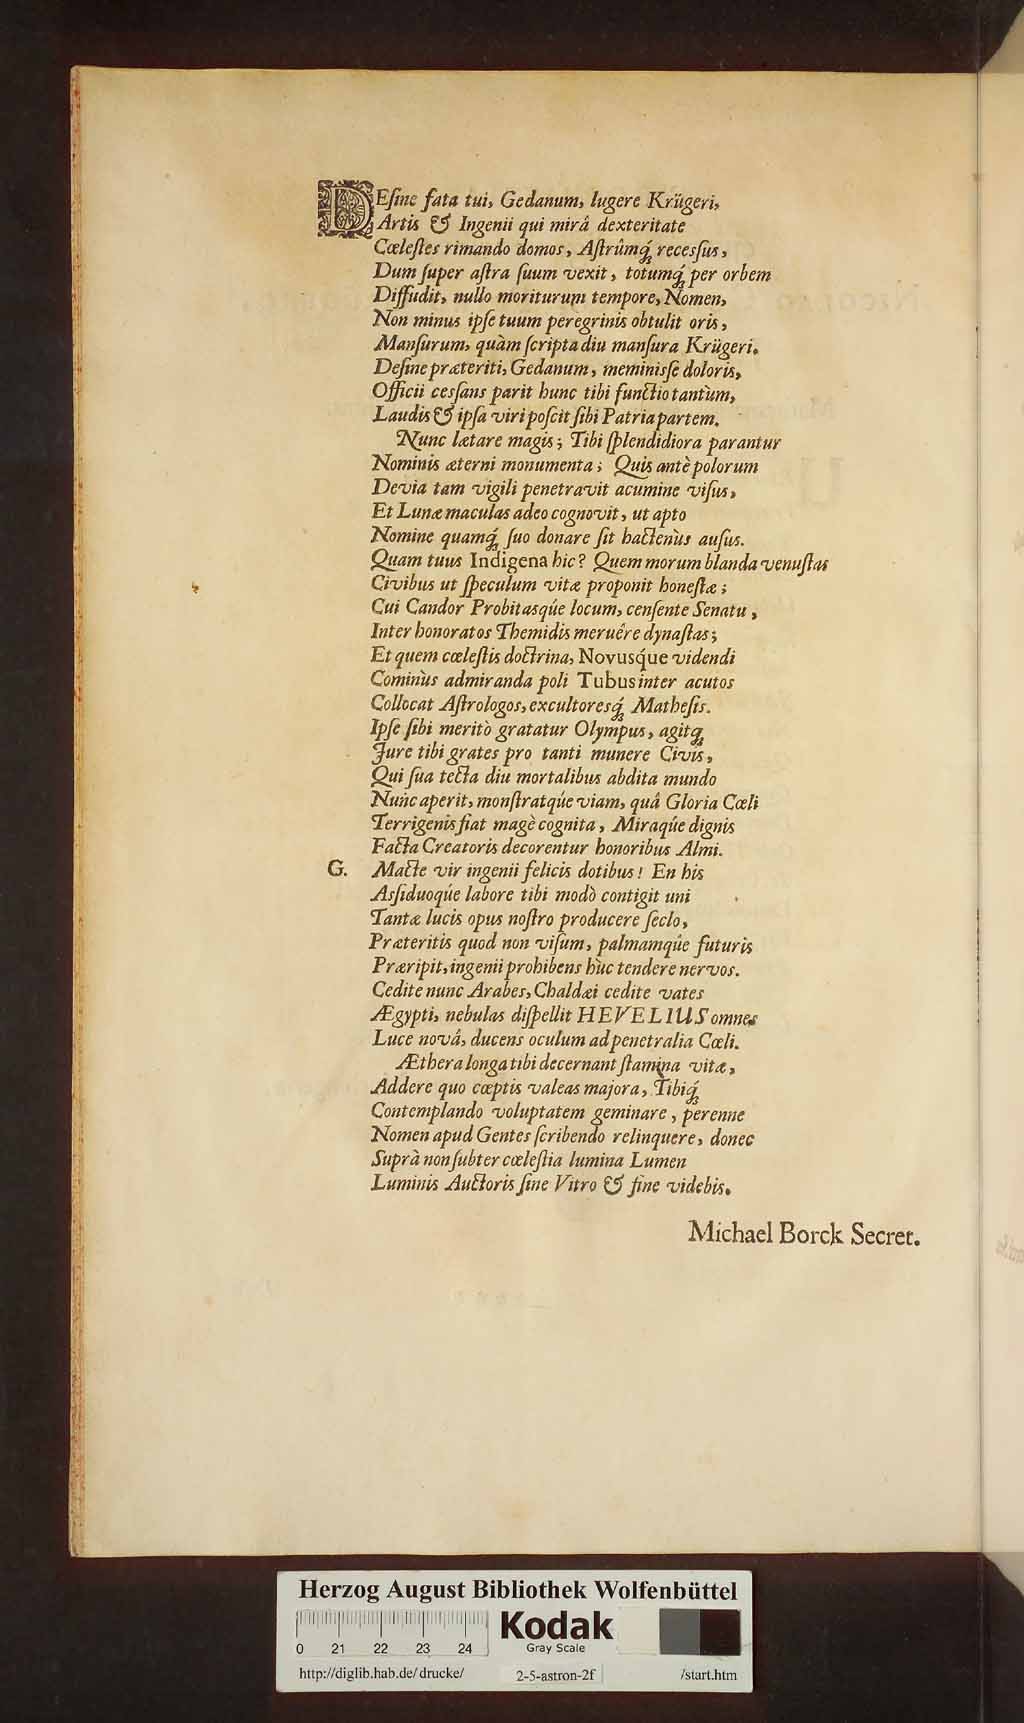 DEſine fata tui, Gedanum, lugere Krügeri,
Artis & Ingenii qui mirâ dexteritate
Cœleſtes rimando domos, Aſtrûmq́ꝫ receſsus,
Dum ſuper aſtra ſuum vexit, totumq́ꝫ per orbem
Diffudit, nullo moriturum tempore, Nomen,
Non minus ipſe tuum peregrinis obtulit oris,
Manſurum, quàm ſcripta diu manſura Krügeri.
Deſine præteriti, Gedanum, meminiſse doloris,
Officii ceſsans parit hunc tibi functio tantùm,
Laudis & ipſa viri poſcit ſibi Patria partem.
Nunc lætare magis; Tibi ſplendidiora parantur
Nominis æterni monumenta; Quis antè polorum
Devia tam vigili penetravit acumine viſus,
Et Lunæ maculas adeo cognovit, ut apto
Nomine quamq́ꝫ ſuo donare ſit hactenùs auſus.
Quam tuus Indigena hic? Quem morum blanda venuſtas
Civibus ut ſpeculum vitæ proponit honeſtæ;
Cui Candor Probitasq́ue locum, cenſente Senatu,
Inter honoratos Themidis meruêre dynaſtas;
Et quem cœleſtis doctrina, Novusq́ue videndi
Cominùs admiranda poli Tubus inter acutos
Collocat Aſtrologos, excultoresq́ꝫ Matheſis.
Ipſe ſibi meritò gratatur Olympus, agitq́ꝫ
Jure tibi grates pro tanti munere Civis,
Qui ſua tecta diu mortalibus abdita mundo
Nunc aperit, monſtratq́ue viam, quâ Gloria Cœli
Terrigenis fiat magè cognita, Miraq́ue dignis
Facta Creatoris decorentur honoribus Almi.
G. Macte vir ingenii felicis dotibus! En his
Aſſiduoq́ue labore tibi modò contigit uni
Tantæ lucis opus noſtro producere ſeclo,
Præteritis quod non viſum, palmamq́ue futuris
Præripit, ingenii prohibens hùc tendere nervos.
Cedite nunc Arabes, Chaldæi cedite vates
Ægypti, nebulas diſpellit HEVELIUS omnes
Luce novâ, ducens oculum ad penetralia Cœli.
Æthera longa tibi decernant ſtamina vitæ,
Addere quo cœptis valeas majora, Tibiq́ꝫ
Contemplando voluptatem geminare, perenne
Nomen apud Gentes ſcribendo relinquere, donec
Suprà non ſubter cœleſtia lumina Lumen
Luminis Auctoris ſine Vitro & fine videbis.
Michael Borck Secret.
Herzog August Bibliothek Wolfenbüttel
0 21 22 23 24
Kodak
Gray Scale
http://diglib.hab.de/drucke/ 2-5-astron-2f /start.htm